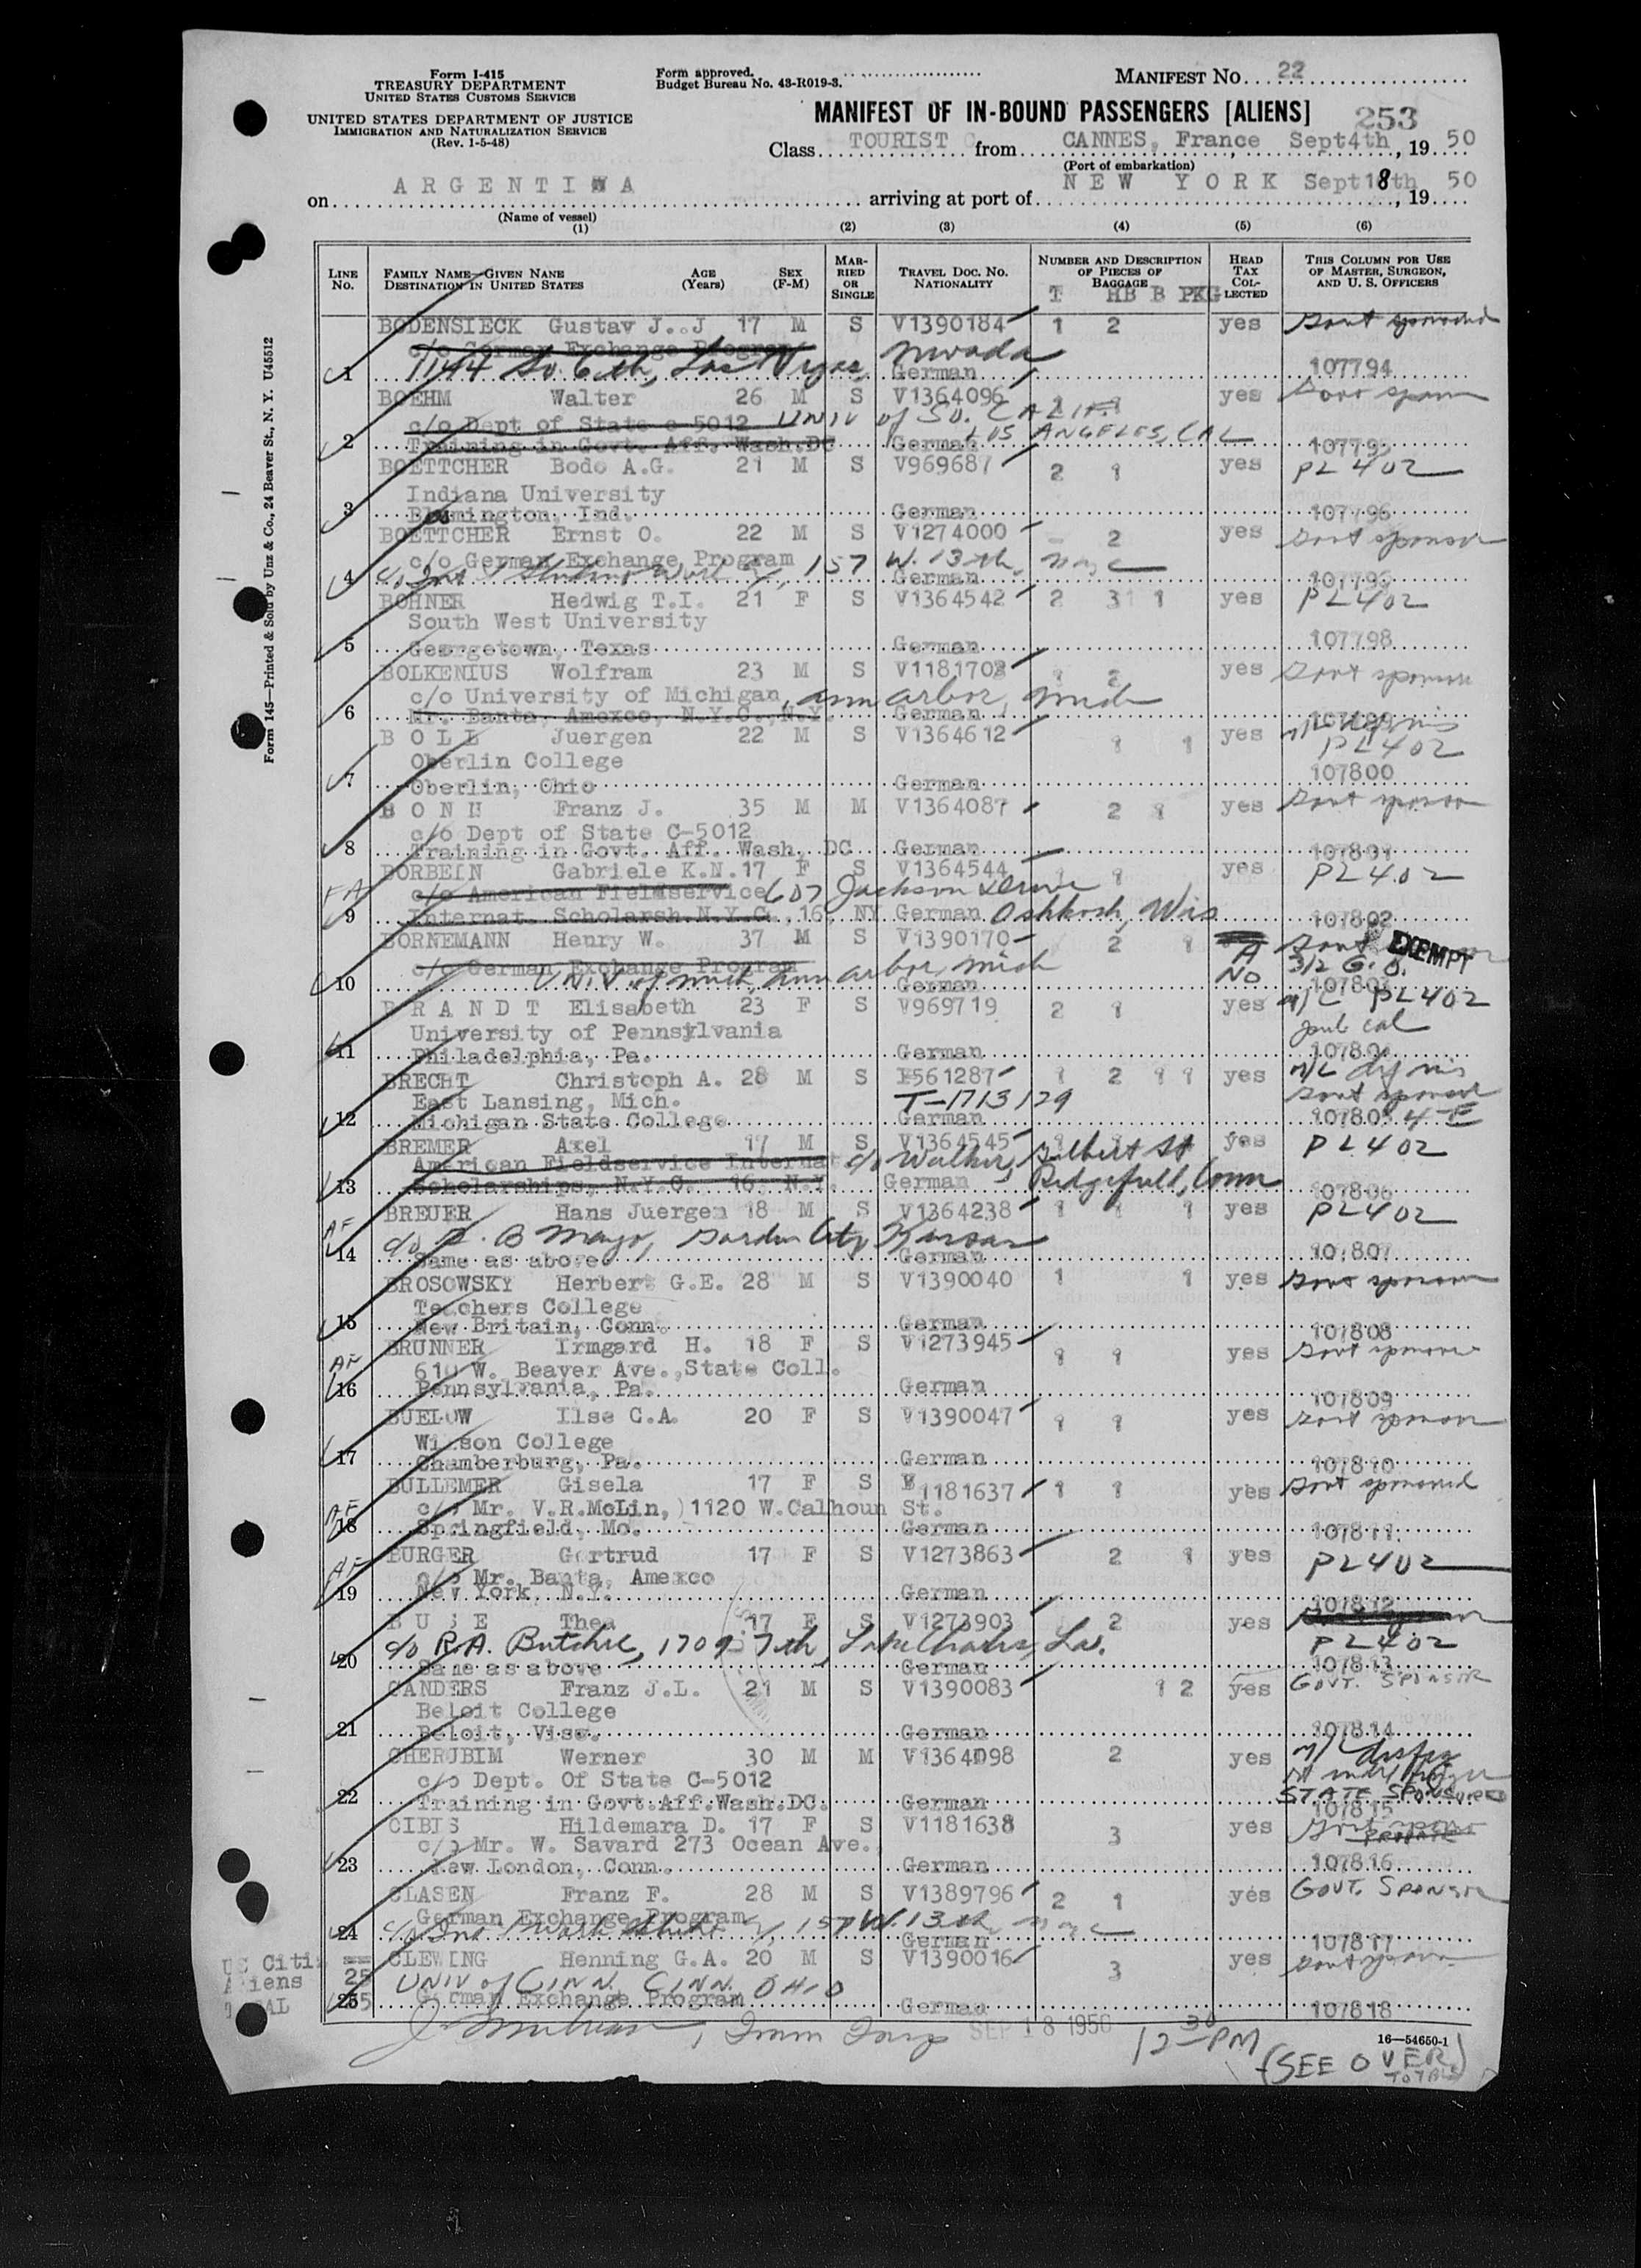 Form I-415
TREASURY DEPARTMENT
UNITED STATES CUSTOMS SERVICE
UNITED STATES DEPARTMENT OF JUSTICE
IMMIGRATION AND NATURALIZATION SERVICE
(Rev. 1-5-48)
Form approved.
Budget Bureau No. 43-R019-3.
MANIFEST NO. 22
MANIFEST OF IN-BOUND PASSENGERS [ALIENS] 253
Class TOURIST from CANNES, France Sept4th, 19 50
(Port of embarkation)
on ARGENTINA arriving at port of NEW YORK Sept18th, 19 50
(Name of vessel)
(1) (2) (3) (4) (5) (6)
LINE NO.
FAMILY NAME—GIVEN NANE AGE (Years) SEX (F-M)
DESTINATION IN UNITED STATES
MARRIED OR SINGLE
TRAVEL DOC. NO. NATIONALITY
NUMBER AND DESCRIPTION OF PIECES OF BAGGAGE
T HB B PKG
HEAD TAX COLLECTED
THIS COLUMN FOR USE OF MASTER, SURGEON, AND U. S. OFFICERS
BODENSIECK Gustav J..J 17 M S V1390184 1 2 yes Govt sponsored
c/o German Exchange Program
1 1144 So. 6th, Las Vegas, Nevada German 107794
BOEHM Walter 26 M S V1364096 yes Govt spons
c/o Dept of State c-5012 UNIV of SO. CALIF.
2 Training in Govt. Aff. Wash.DC German LOS ANGELES, CAL 107795
BOETTCHER Bodo A.G. 21 M S V969687 2 1 yes PL 402
Indiana University
3 Blomington, Ind. German 107796
BOETTCHER Ernst O. 22 M S V1274000 2 yes Govt sponsor
c/o German Exchange Program
4 157 W. 13th, NYC German
BOHNER Hedwig T.I. 21 F S V1364542 2 3 1 yes PL 402
South West University
5 Georgetown, Texas German 107798
BOLKENIUS Wolfram 23 M S V1181703 1 2 yes Govt sponsor
c/o University of Michigan, Ann Arbor, Mich
6 Mr. Banta, Amexco, N.Y.C., N.Y. German 107799
BOLL Juergen 22 M S V1364612 1 1 yes PL 402
Oberlin College
7 Oberlin, Ohio German 107800
BONH Franz J. 35 M M V1364087 2 1 yes Govt sponsor
c/o Dept of State C-5012
8 Training in Govt. Aff. Wash, DC German 107801
BORBEIN Gabriele K.N. 17 F S V1364544 1 yes PL 402
c/o American Fieldservice 607 Jackson Drive
9 Internat. Scholarsh.N.Y.C., 16, NY German Oshkosh, Wis 107802
BORNEMANN Henry W. 37 M S V1390170 2 1 A NO Govt EXEMPT
c/o German Exchange Program 3/2 G.O.
10 Univ. of Mich, Ann Arbor, Mich German 107803
BRANDT Elisabeth 23 F S V969719 2 1 yes PL 402
University of Pennsylvania
11 Philadelphia, Pa. German
BRECHT Christoph A. 28 M S 561287 1 2 1 1 yes
East Lansing, Mich. T-1713129 Govt sponsor
12 Michigan State College German 107805 4-E
BREMER Axel 17 M S V1364545 yes PL 402
American Fieldservice Internat c/o Walker, Gilbert St
13 Scholarships, N.Y.C. 16, N.Y. German Ridgefield, Conn 107806
BREUER Hans Juergen 18 M S V1364238 1 1 1 yes PL 402
AF c/o Mayo, Garden City, Kansas
14 Same as above German 107807
BROSOWSKY Herbert G.E. 28 M S V1390040 1 1 yes Govt sponsor
Teachers College
15 New Britain, Conn. German 107808
BRUNNER Irmgard H. 18 F S V1273945 1 1 yes Govt sponsor
AF 610 W. Beaver Ave.,State Coll.
16 Pennsylvania, Pa. German 107809
BUELOW Ilse C.A. 20 F S V1390047 1 1 yes Govt sponsor
Wilson College
17 Chamberburg, Pa. German 107810
BULLEMER Gisela 17 F S 1181637 1 1 yes Govt sponsored
AF c/o Mr. V.R.McLin, 1120 W.Calhoun St.
18 Springfield, Mo. German 107811
BURGER Gertrud 17 F S V1273863 2 1 yes PL 402
AF c/o Mr. Banta, Amexco
19 New York, N.Y. German 107812
BUSE Thea 17 F S V1273903 2 yes
c/o R.A. 1709 7th, Lake Charles, La. PL 402
20 Same as above German 107813
CANDERS Franz J.L. 21 M S V1390083 1 2 yes GOVT. SPONSOR
Beloit College
21 Beloit, Visc. German 107814
CHERUBIM Werner 30 M M V1364098 2 yes
c/o Dept. Of State C-5012 STATE SPONSORED
22 Training in Govt.Aff.Wash.DC. German 107815
CIBIS Hildemara D. 17 F S V1181638 3 yes Govt
c/o Mr. W. Savard 273 Ocean Ave. PRIVATE
23 New London, Conn. German 107816
CLASEN Franz F. 28 M S V1389796 2 1 yes GOVT. SPONSOR
German Exchange Program
24 157 W. 13th, NYC German 107817
CLEWING Henning G.A. 20 M S V1390016 3 yes Govt sponsor
UNIV of CINN. CINN. OHIO
25 German Exchange Program German 107818
US Citiz
Aliens 25
TOTAL 25
SEP 18 1950 12 30 PM
16—54650-1
(SEE OVER)
TOTAL
Form 145—Printed & Sold by Unz & Co., 24 Beaver St., N. Y. U45512